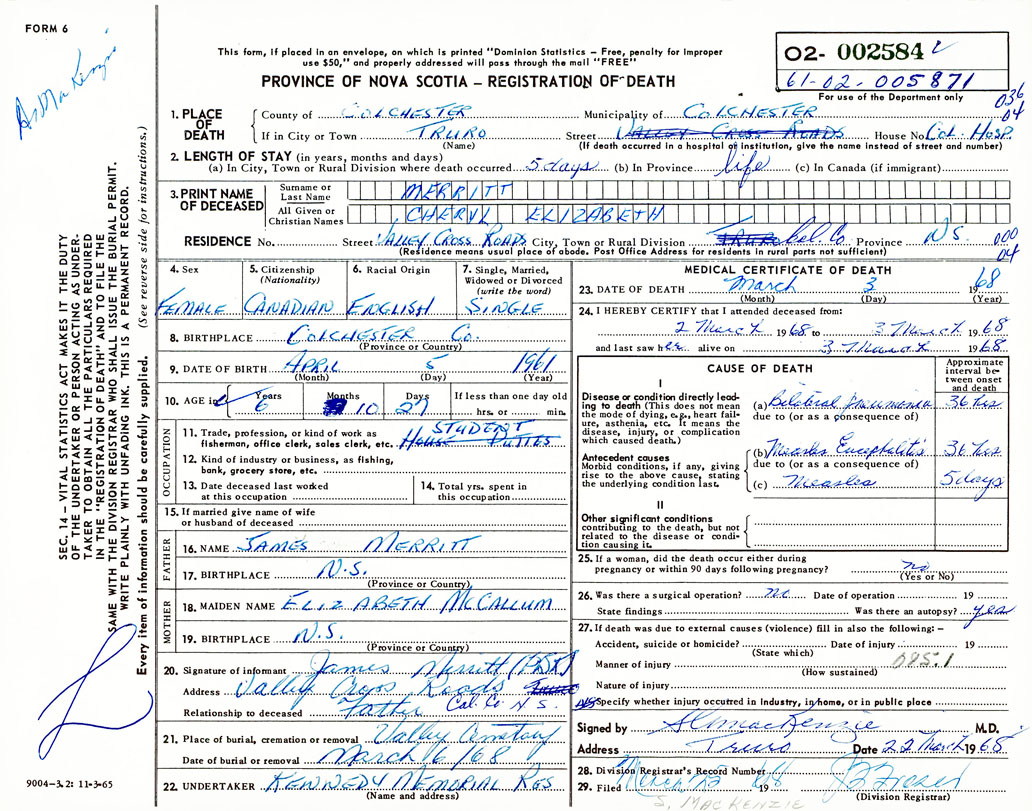 FORM 6
This form, if placed in an envelope, on which is printed "Dominion Statistics – Free, penalty for improper
use $50," and properly addressed will pass through the mail "FREE"
PROVINCE OF NOVA SCOTIA – REGISTRATION OF DEATH
O2- 002584
61-02-005871
For use of the Department only
036
04
1. PLACE OF DEATH
County of COLCHESTER Municipality of COLCHESTER
If in City or Town TRURO Street VALLEY CROSS ROADS House No. Col. Hosp.
(Name) (If death occurred in a hospital or institution, give the name instead of street and number)
2. LENGTH OF STAY (in years, months and days)
(a) In City, Town or Rural Division where death occurred 5 days (b) In Province life (c) In Canada (if immigrant)
3. PRINT NAME OF DECEASED
Surname or Last Name MERRITT
All Given or Christian Names CHERYL ELIZABETH
RESIDENCE No. Street VALLEY CROSS ROADS City, Town or Rural Division TRURO Col. Co. Province N.S.
(Residence means usual place of abode. Post Office Address for residents in rural parts not sufficient)
000
04
4. Sex
FEMALE
5. Citizenship
(Nationality)
CANADIAN
6. Racial Origin
ENGLISH
7. Single, Married,
Widowed or Divorced
(write the word)
SINGLE
8. BIRTHPLACE COLCHESTER Co.
(Province or Country)
9. DATE OF BIRTH APRIL 5 1961
(Month) (Day) (Year)
10. AGE in Years Months Days If less than one day old
6 10 27 hrs. or min.
OCCUPATION
11. Trade, profession, or kind of work as
fisherman, office clerk, sales clerk, etc. STUDENT
HOUSE DUTIES
12. Kind of industry or business, as fishing,
bank, grocery store, etc.
13. Date deceased last worked
at this occupation
14. Total yrs. spent in
this occupation
15. If married give name of wife
or husband of deceased
FATHER
16. NAME JAMES MERRITT
17. BIRTHPLACE N.S.
(Province or Country)
MOTHER
18. MAIDEN NAME ELIZABETH McCALLUM
19. BIRTHPLACE N.S.
(Province or Country)
20. Signature of informant James Merritt
Address Valley Cross Roads
Col. Co N S.
Relationship to deceased Father
21. Place of burial, cremation or removal Valley Cemetery
Date of burial or removal March 6/68
22. UNDERTAKER KENNEDY MEMORIAL
(Name and address)
MEDICAL CERTIFICATE OF DEATH
23. DATE OF DEATH March 3 1968
(Month) (Day) (Year)
24. I HEREBY CERTIFY that I attended deceased from:
2 March 1968 to 3 March 1968
and last saw her alive on 3 March 1968
CAUSE OF DEATH
Approximate
interval be-
tween onset
and death
I
Disease or condition directly lead-
ing to death (This does not mean
the mode of dying, e.g., heart fail-
ure, asthenia, etc. It means the
disease, injury, or complication
which caused death.)
(a) Bilateral pneumonia 36 hrs
due to (or as a consequence of)
Antecedent causes
Morbid conditions, if any, giving
rise to the above cause, stating
the underlying condition last.
(b) Measles Encephalitis 36 hrs
due to (or as a consequence of)
(c) Measles 5 days
II
Other significant conditions
contributing to the death, but not
related to the disease or condi-
tion causing it.
25. If a woman, did the death occur either during
pregnancy or within 90 days following pregnancy? no
(Yes or No)
26. Was there a surgical operation? no Date of operation 19
State findings Was there an autopsy? yes
27. If death was due to external causes (violence) fill in also the following: –
Accident, suicide or homicide? Date of injury 19
(State which)
Manner of injury 085.1
(How sustained)
Nature of injury
Specify whether injury occurred in Industry, in home, or in public place
Signed by M.D.
Address Truro Date 22 March 1968
28. Division Registrar's Record Number
29. Filed March 25 1968
(Division Registrar)
S. MACKENZIE
SEC. 14 – VITAL STATISTICS ACT MAKES IT THE DUTY
OF THE UNDERTAKER OR PERSON ACTING AS UNDER-
TAKER TO OBTAIN ALL THE PARTICULARS REQUIRED
IN THE "REGISTRATION OF DEATH" AND TO FILE THE
SAME WITH THE DIVISION REGISTRAR WHO SHALL ISSUE THE BURIAL PERMIT.
WRITE PLAINLY WITH UNFADING INK. THIS IS A PERMANENT RECORD.
Every item of information should be carefully supplied. (See reverse side for instructions.)
9004–3.2: 11-3-65